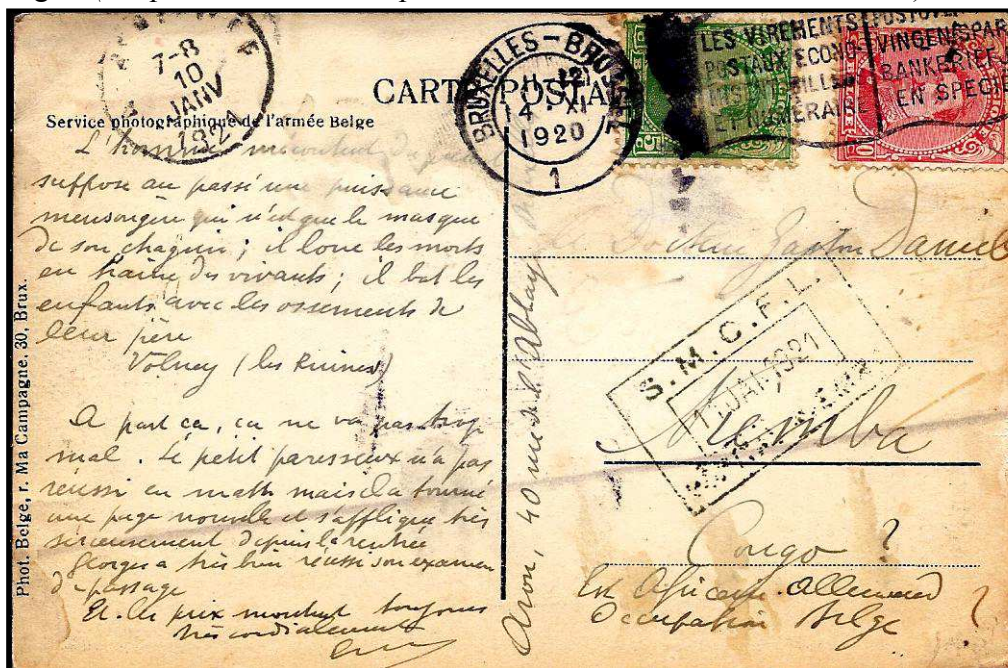 7-8
10
JANV
CARTE POSTALE
BRUXELLES-BRUSSEL
14 XI
1920
1
LES VIREMENTS
POSTAUX ECONO-
BILLE
ET NUMÉRAIRE
VINGEN SPAR
BANKBRIEF
EN SPECI
Service photographique de l'armée Belge
L'homme mécontent du
suppose au passé une puissance
mensongère qui n'est que le masque
de son chagrin ; il loue les morts
en haine des vivants ; il bat les
enfants avec les ossements de
leur père
Volney (les Ruines)
A part ça, ça ne va pas trop
mal. Le petit paresseux n'a pas
réussi en math mais il a tourné
une page nouvelle et s'applique très
sérieusement depuis la rentrée
Georges a très bien réussi son examen
de passage
Et les prix montent toujours
très cordialement
Phot. Belge, r. Ma Campagne, 30, Brux.
40 rue de l'Abbaye
Docteur Gaston Daniel
S.M.C.F.L.
11 JAN. 1921
Congo ?
Est Africain allemand
Occupation Belge ?